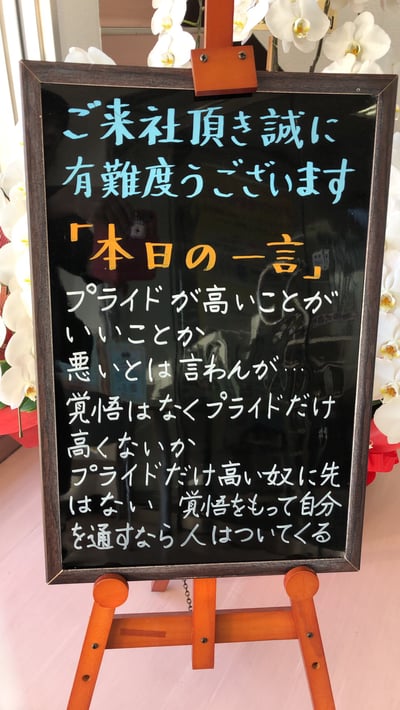 ご来社頂き誠に
有難度うございます
「本日の一言」
プライドが高いことが
いいことか
悪いとは言わんが…
覚悟はなくプライドだけ
高くないか
プライドだけ高い奴に先
はない　覚悟をもって自分
を通すなら人はついてくる